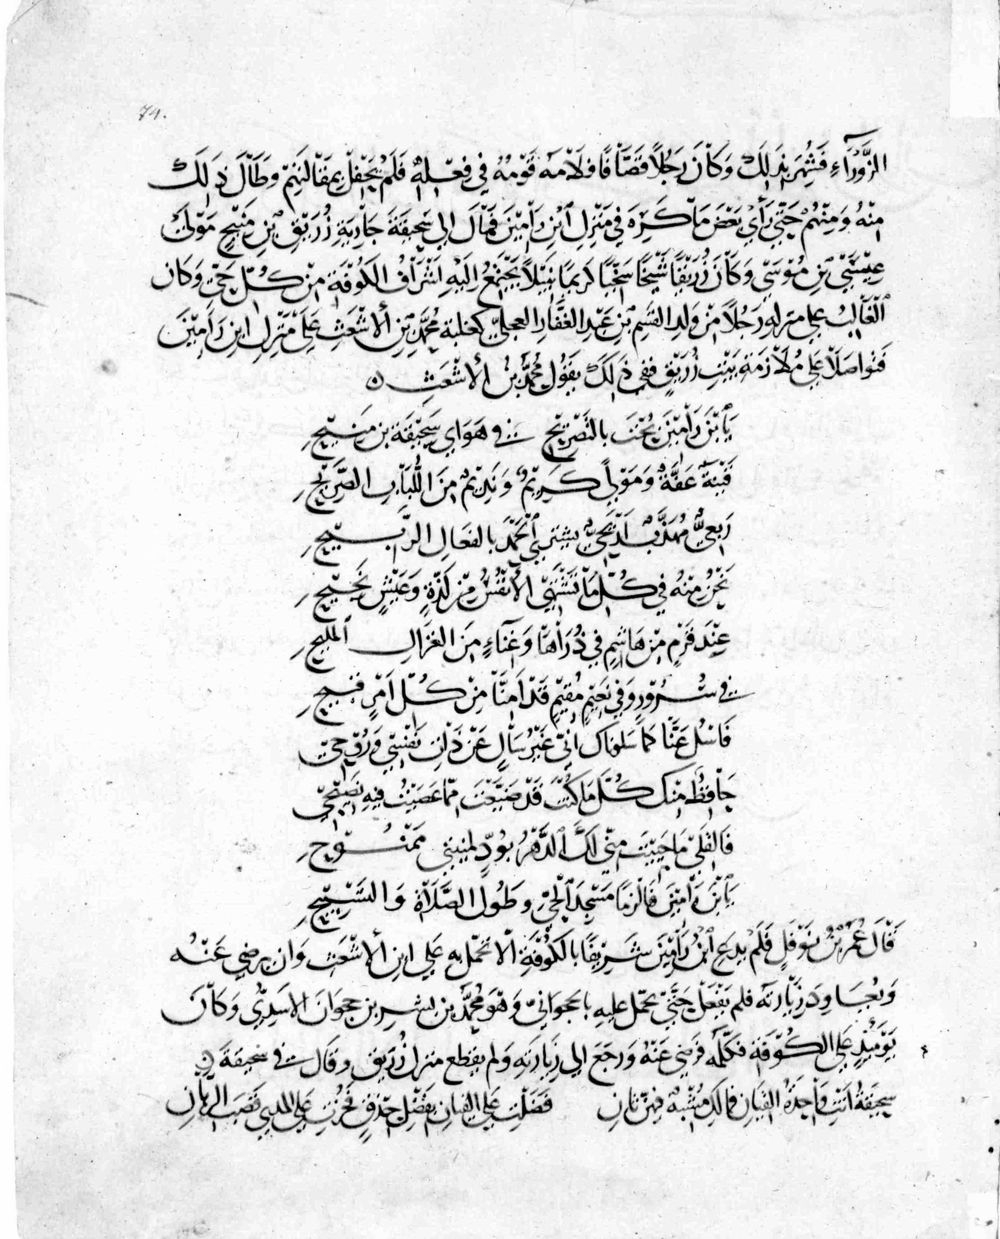 74.
الزَّرْقَاءِ فَشُهِرَ بِذَلِكَ وَكَانَ رَجُلًا قَصَّافًا وَلَامَهُ قَوْمُهُ فِي فِعْلِهِ فَلَمْ يَحْفِلْ بِمَقَالَتِهِمْ وَطَالَ ذَلِكَ
مِنْهُ وَمِنْهُمْ حَتَّى رَأَى بَعْضَ مَا كَرِهَ فِي مَنْزِلِ ابْنِ رَامِينَ فَمَالَ إِلَى سَحِيقَةَ جَارِيَةِ زُرَيْقِ بْنِ مَنِيحٍ مَوْلَى
عِيسَى بْنِ مُوسَى وَكَانَ زُرَيْقٌ شَيْخًا سَخِيًّا كَرِيمًا نَبِيلًا يَجْتَمِعُ إِلَيْهِ أَشْرَافُ الْكُوفَةِ مِنْ كُلِّ حَيٍّ وَكَانَ
الْغَالِبُ عَلَى مَنْزِلِهِ رَجُلًا مِنْ وَلَدِ الْقَسِمِ بْنِ عَبْدِ الْغَفَّارِ الْعِجْلِيّ كَغَلَبَةِ مُحَمَّدِ بْنِ الْأَشْعَثِ عَلَى مَنْزِلِ ابْنِ رَامِينَ
فَتَوَاصَلَا عَلَى مُلَازَمَةِ بَيْتِ زُرَيْقٍ فَفِي ذَلِكَ يَقُولُ مُحَمَّدُ بْنُ الْأَشْعَثِ
يَا ابْنَ رَامِينَ بُحْتَ بِالتَّصْرِيحِ فِي هَوَايَ سَحِيقَةَ بْنِ مَنِيحِ
قَيْنَةٌ عَفَّةٌ وَمَوْلًى كَرِيمٌ وَنَدِيمٌ مِنَ اللُّبَابِ الصَّرِيحِ
رَبَعِيٌّ مُهَذَّبٌ أَرْيَحِيٌّ يَشْتَرِي الْحَمْدَ بِالْفَعَالِ الرَّبِيحِ
نَحْنُ مِنْهُ فِي كُلِّ مَا تَشْتَهِي الْأَنْفُسُ مِنْ لَذَّةٍ وَعَيْشٍ نَجِيحِ
عِنْدَ قَرْمٍ مِنْ هَاشِمٍ فِي ذُرَاهَا وَغِنَاءٍ مِنَ الْغَزَالِ الْمَلِيحِ
فِي سُرُورٍ وَفِي نَعِيمٍ مُقِيمٍ قَدْ أَمِنَّا مِنْ كُلِّ أَمْرٍ قَبِيحِ
فَاسْلُ عَنَّا كَمَا سَلَوْنَاكَ إِنِّي غَيْرُ سَالٍ عَنْ ذَاتِ نَفْسِي وَرُوحِي
حَافِظٌ مِنْكَ كُلَّ مَا كُنْتَ قَدْ ضَيَّعْتَ مِمَّا عَصَيْتُ فِيهِ نَصِيحِي
فَالْقَلَى مَا حَيِيتَ مِنِّي لَكَ الدَّهْرَ بِوُدٍّ لِمُنْيَتِي مَمْنُوحِ
يَا ابْنَ رَامِينَ فَالْزَمَا مَسْجِدَ الْحَيِّ وَطُولَ الصَّلَاةِ وَالتَّسْبِيحِ
قَالَ عُمَرُ بْنُ نَوْفَلٍ فَلَمْ يَدَعِ ابْنُ رَامِينَ شَرِيفًا بِالْكُوفَةِ إِلَّا تَحَمَّلَ بِهِ عَلَى ابْنِ الْأَشْعَثِ وَأَنْ يَرْضَى عَنْهُ
وَيُعَاوِدَ زِيَارَتَهُ فَلَمْ يَفْعَلْ حَتَّى تَحَمَّلَ عَلَيْهِ بِالجحوانيّ وَهُوَ مُحَمَّدُ بْنُ بِشْرِ بْنِ جحوان الْأَسَدِيّ وَكَانَ
يَوْمَئِذٍ عَلَى الْكُوفَةِ فَكَلَّمَهُ فَرَضِيَ عَنْهُ وَرَجَعَ إِلَى زِيَارَتِهِ وَلَمْ يَقْطَعْ مَنْزِلَ زُرَيْقٍ وَقَالَ فِي سَحِيقَةَ
سَحِيقَةُ أَنْتِ وَاحِدَةُ الْقِيَانِ فَمَا لَكِ مُشْبِهٌ فِيهِنَّ ثَانِ فَضَلْتِ عَلَى الْقِيَانِ بِفَضْلِ حِذْقٍ فَحُزْتِ عَلَى الْمَدَى قَصَبَ الرِّهَانِ